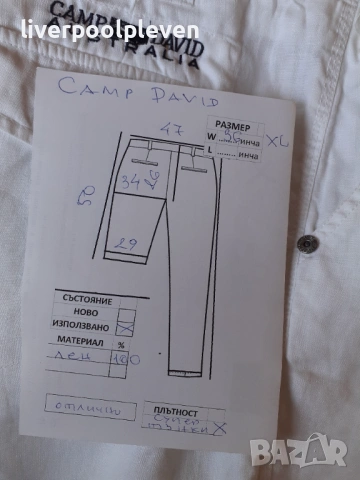 liverpoolpleven
CAMP DAVID
AUSTRALIA
CAMP DAVID
47
РАЗМЕР
W ...36...инча XL
L ..........инча
34
50
29
СЪСТОЯНИЕ
НОВО
ИЗПОЛЗВАНО X
МАТЕРИАЛ %
ЛЕН 100
ОТЛИЧНО
ПЛЪТНОСТ
СУПЕР
ТЪНКИ X
BAZAR.BG